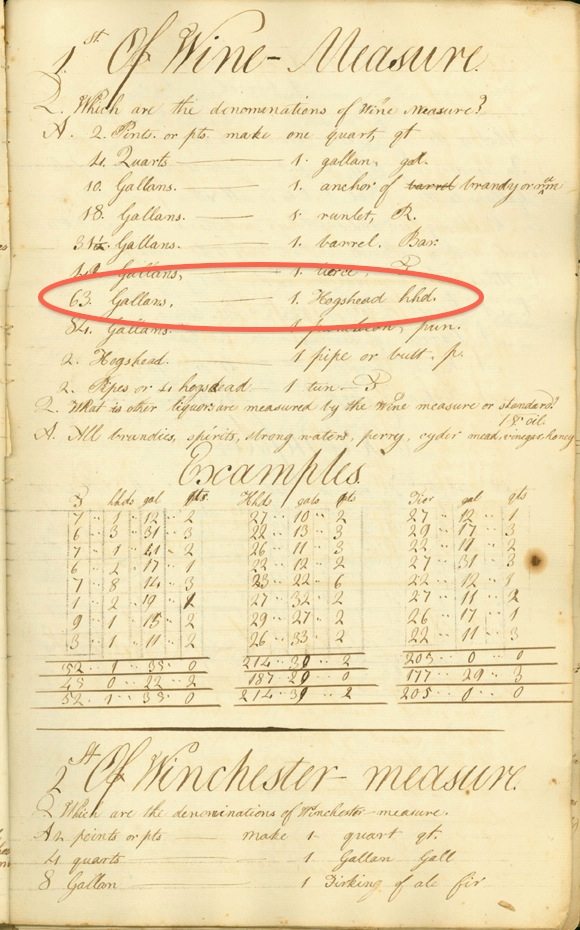 1.st Of Wine-Measure.
Q. Which are the denominations of Wine Measure?
A. 2. Pints. or pts. make one quart, qt
4. Quarts — 1. gallan, gal.
10. Gallans. — 1. anchor of barrel brandy or rum
18. Gallans. — 1. runlet, R.
31½ Gallans. — 1. barrel. Bar.
42 Gallans, — 1. tierce,
63. Gallans, — 1. Hogshead hhd.
84. Gallans. — 1 puncheon, pun.
2. Hogshead. — 1 pipe or butt. p.
2. Pipes or 4 hogsdead — 1 tun — T
Q. What is other liquors are measured by the Wine measure or standard?
A. All brandies, spirits, strong waters, perry, cyder mead, vinegar honey & oil.
Examples.
T hhds gal qts Hhds gals qts Tier gal qts
7 1 12 2 27 10 2 27 12 1
6 3 31 3 22 13 3 29 17 3
7 1 41 2 26 11 3 22 11 2
6 2 17 1 22 12 2 27 31 3
7 8 14 3 23 22 6 22 12 1
1 2 19 1 27 32 2 27 11 2
9 1 15 2 29 27 2 26 17 1
3 1 11 2 26 33 2 22 11 3
52 1 33 0 214 30 2 205 0 0
45 0 22 2 187 20 0 177 29 3
52 1 33 0 214 30 2 205 0 0
2.st Of Winchester-measure.
Q Which are the denominations of Winchester-measure.
A 2 points or pts make 1 quart qt.
4 quarts — 1 Gallan Gall
8 Gallan — 1 Firking of ale fir